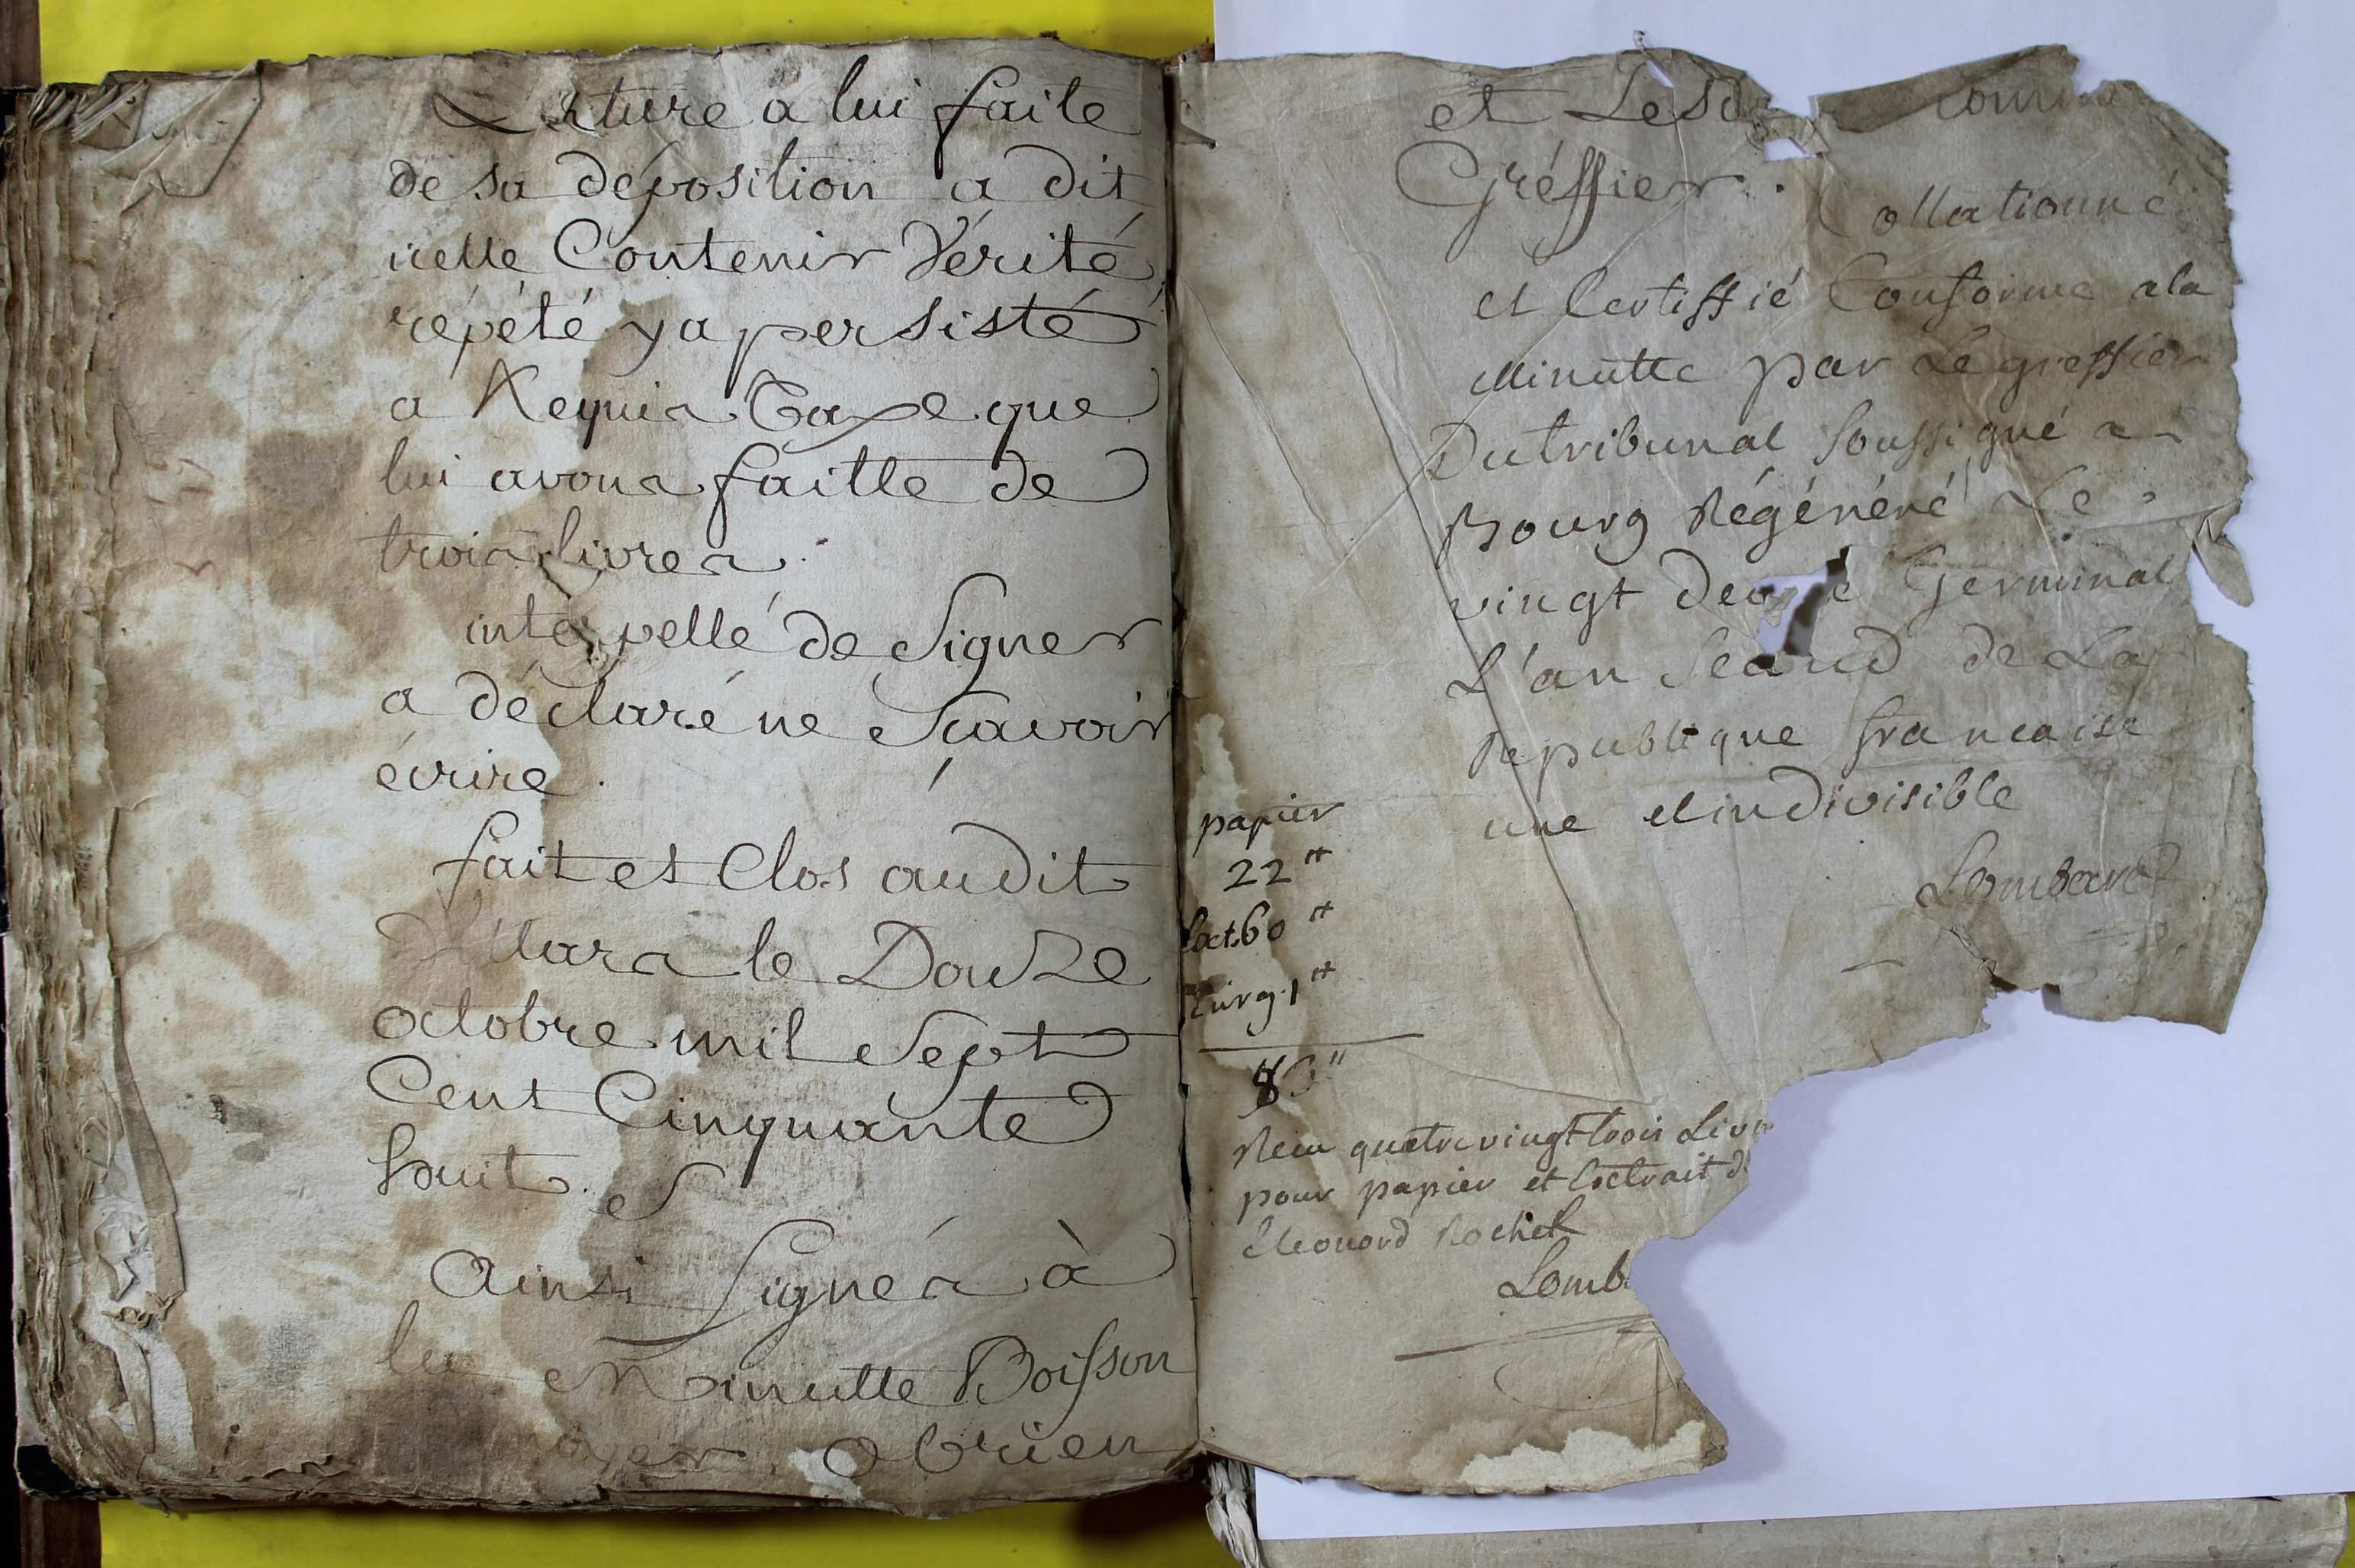 Lecture a lui faite
de sa déposition a dit
icelle Contenir Vérité,
répété y a persisté
a Requis Taxe que
lui avons faitte de
trois livres.
interpellé de Signer
a déclaré ne Sçavoir
écrire.
fait et Clos audit
Mars le Douze
octobre mil Sept
Cent Cinquante
huit.
Ainsi Signés à
la Minutte Boisson
Obrien
et
Gréffier. Collationné
et Certiffié Conforme a la
Minutte par Le greffier
Du tribunal Soussigné a
Bourg Régénéré Le
vingt Germinal
L'an Second de La
Republique francaise
une et indivisible
Lombard
papier
22 ₶
Ext. 60 ₶
Enrg. 1 ₶
83 ₶
Recu quatre vingt trois Liv
pour papier et Extrait d
Eleonord Rochet
Lomb